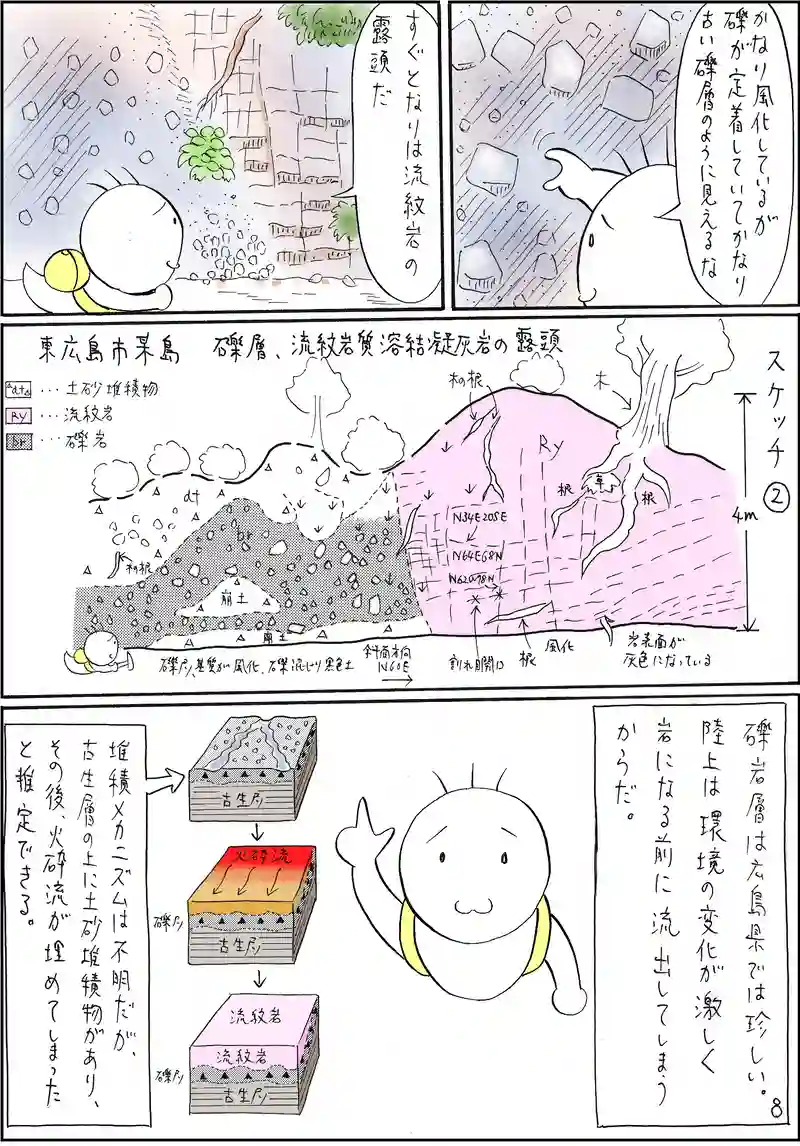 かなり風化しているが
礫が定着していてかなり
古い礫層のように見えるな
すぐとなりは流紋岩の
露頭だ
スケッチ②
東広島市某島 礫層、流紋岩質溶結凝灰岩の露頭
dt…土砂堆積物
Ry…流紋岩
br…礫岩
木の根
木
Ry
dt
br
木の根
根
草
根
4m
N34E20SE
N64E68N
N62W78N
崩土
崩土
礫層、基質が風化、礫混じり黒色土
斜面方向
N60E
割れ目開口
根
風化
岩表面が
灰色になっている
礫岩層は広島県では珍しい。
陸上は環境の変化が激しく
岩になる前に流出してしまう
からだ。
古生層
火砕流
礫層
古生層
流紋岩
流紋岩
礫層
古生層
堆積メカニズムは不明だが、
古生層の上に土砂堆積物があり、
その後、火砕流が埋めてしまった
と推定できる。
8